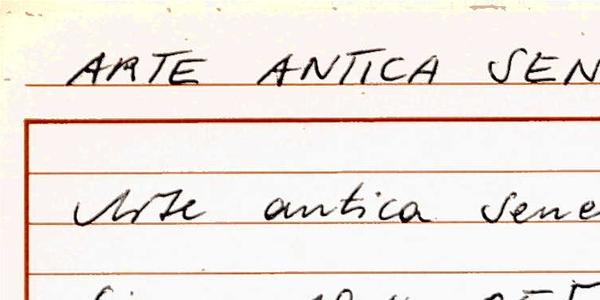 ARTE ANTICA SEN
Arte antica sene